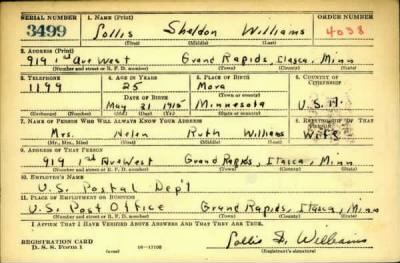 SERIAL NUMBER 1. NAME (Print) ORDER NUMBER
3499 Lollis Sheldon Williams 4038
(First) (Middle) (Last)
2. ADDRESS (Print)
919 1st Ave West Grand Rapids, Itasca, Minn
(Number and street or R. F. D. number) (Town) (County) (State)
3. TELEPHONE 4. AGE IN YEARS 5. PLACE OF BIRTH 6. COUNTRY OF CITIZENSHIP
1199 25 Mora
DATE OF BIRTH (Town or county)
May 21 1915 Minnesota U.S.A.
(Mo.) (Day) (Yr.) (State or country)
7. NAME OF PERSON WHO WILL ALWAYS KNOW YOUR ADDRESS 8. RELATIONSHIP OF THAT PERSON
Mrs. Helen Ruth Williams Wife
(Mr., Mrs., Miss) (First) (Middle) (Last)
9. ADDRESS OF THAT PERSON
919 1st Ave West Grand Rapids, Itasca, Minn
(Number and street or R. F. D. number) (Town) (County) (State)
10. EMPLOYER'S NAME
U.S. Postal Dep't
11. PLACE OF EMPLOYMENT OR BUSINESS
U.S. Post Office Grand Rapids, Itasca, Minn
(Number and street or R. F. D. number) (Town) (County) (State)
I AFFIRM THAT I HAVE VERIFIED ABOVE ANSWERS AND THAT THEY ARE TRUE.
REGISTRATION CARD
D. S. S. FORM 1 16—17105 Lollis S. Williams
(Registrant's signature)